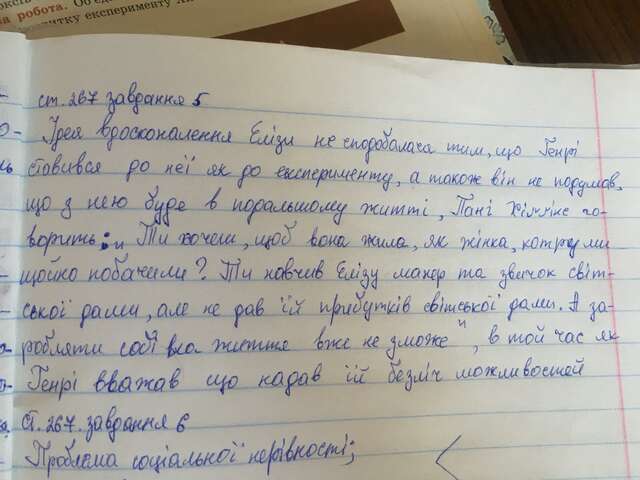 а робота. Об'єд
витку експерименту
ст. 267 завдання 5
Ідея вдосконалення Елізи не сподобалася тим, що Генрі
ставився до неї як до експерименту, а також він не подумав,
що з нею буде в подальшому житті, Пані Хіггінс го-
ворить: „Ти хочеш, щоб вона жила, як жінка, котру ми
щойно побачили? Ти навчив Елізу манер та звичок світ-
ської дами, але не дав їй прибутків світської дами. А за-
робляти собі на життя вже не зможе", в той час як
Генрі вважав що надав їй безліч можливостей
ст. 267. завдання 6
Проблема соціальної нерівності;